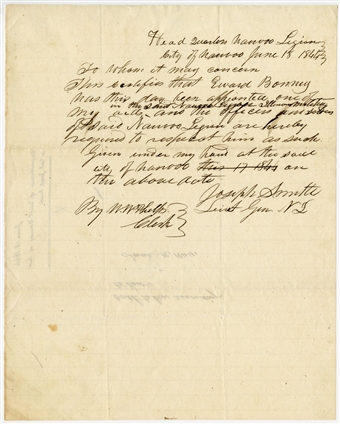 Head Quarters Nauvoo Legion
City of Nauvoo June 18 1844
To whom it may concern
This certifies that Edward Bonney
has this day been appointed one of
in the said Nauvoo Legion
my aids and the officers and
of said Nauvoo Legion are hereby
required to respect him as such
Given under my hand at the said
city of Nauvoo this 17 on
the above date
Joseph Smith
Lieut Gen N L
By W W Phelps
Clerk